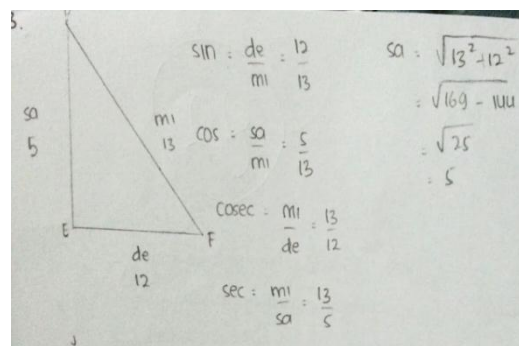 3.
sa
5
mi
13
E
F
de
12
sin = de/mi = 12/13
cos = sa/mi = 5/13
cosec = mi/de = 13/12
sec = mi/sa = 13/5
sa = √13² - 12²
= √169 - 144
= √25
= 5